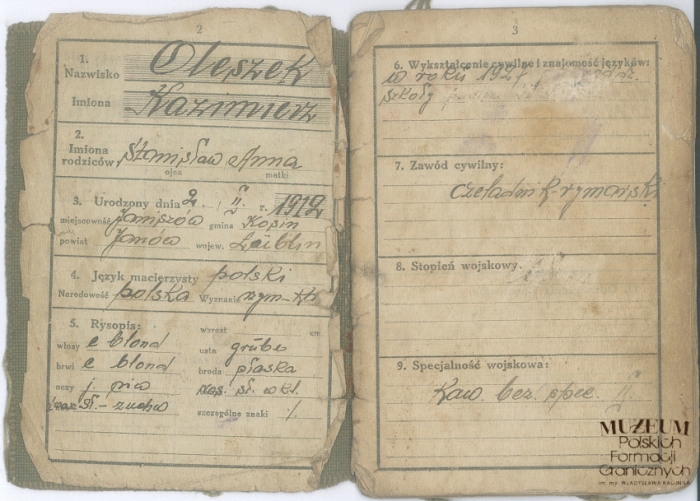 2
1.
Nazwisko Oleszek
Imiona Kazimierz
2.
Imiona
rodziców Stanisław Anna
ojca matki
3. Urodzony dnia 2. II. r. 1912
miejscowość Janiszów gmina Kopin
powiat Janów wojew. Lublin
4. Język macierzysty polski
Narodowość polska Wyznanie rzym-kt
5. Rysopis: wzrost cm
włosy c blond usta grube
brwi c blond broda płaska
oczy j. piw
szczególne znaki
3
6. Wykształcenie cywilne i znajomość języków:
w roku
szkoły
7. Zawód cywilny:
Czeladnik-rymarski
8. Stopień wojskowy.
9. Specjalność wojskowa:
Kaw. bez. spec. II.
MUZEUM
Polskich
Formacji
Granicznych
im. mjr. WŁADYSŁAWA RAGINISA